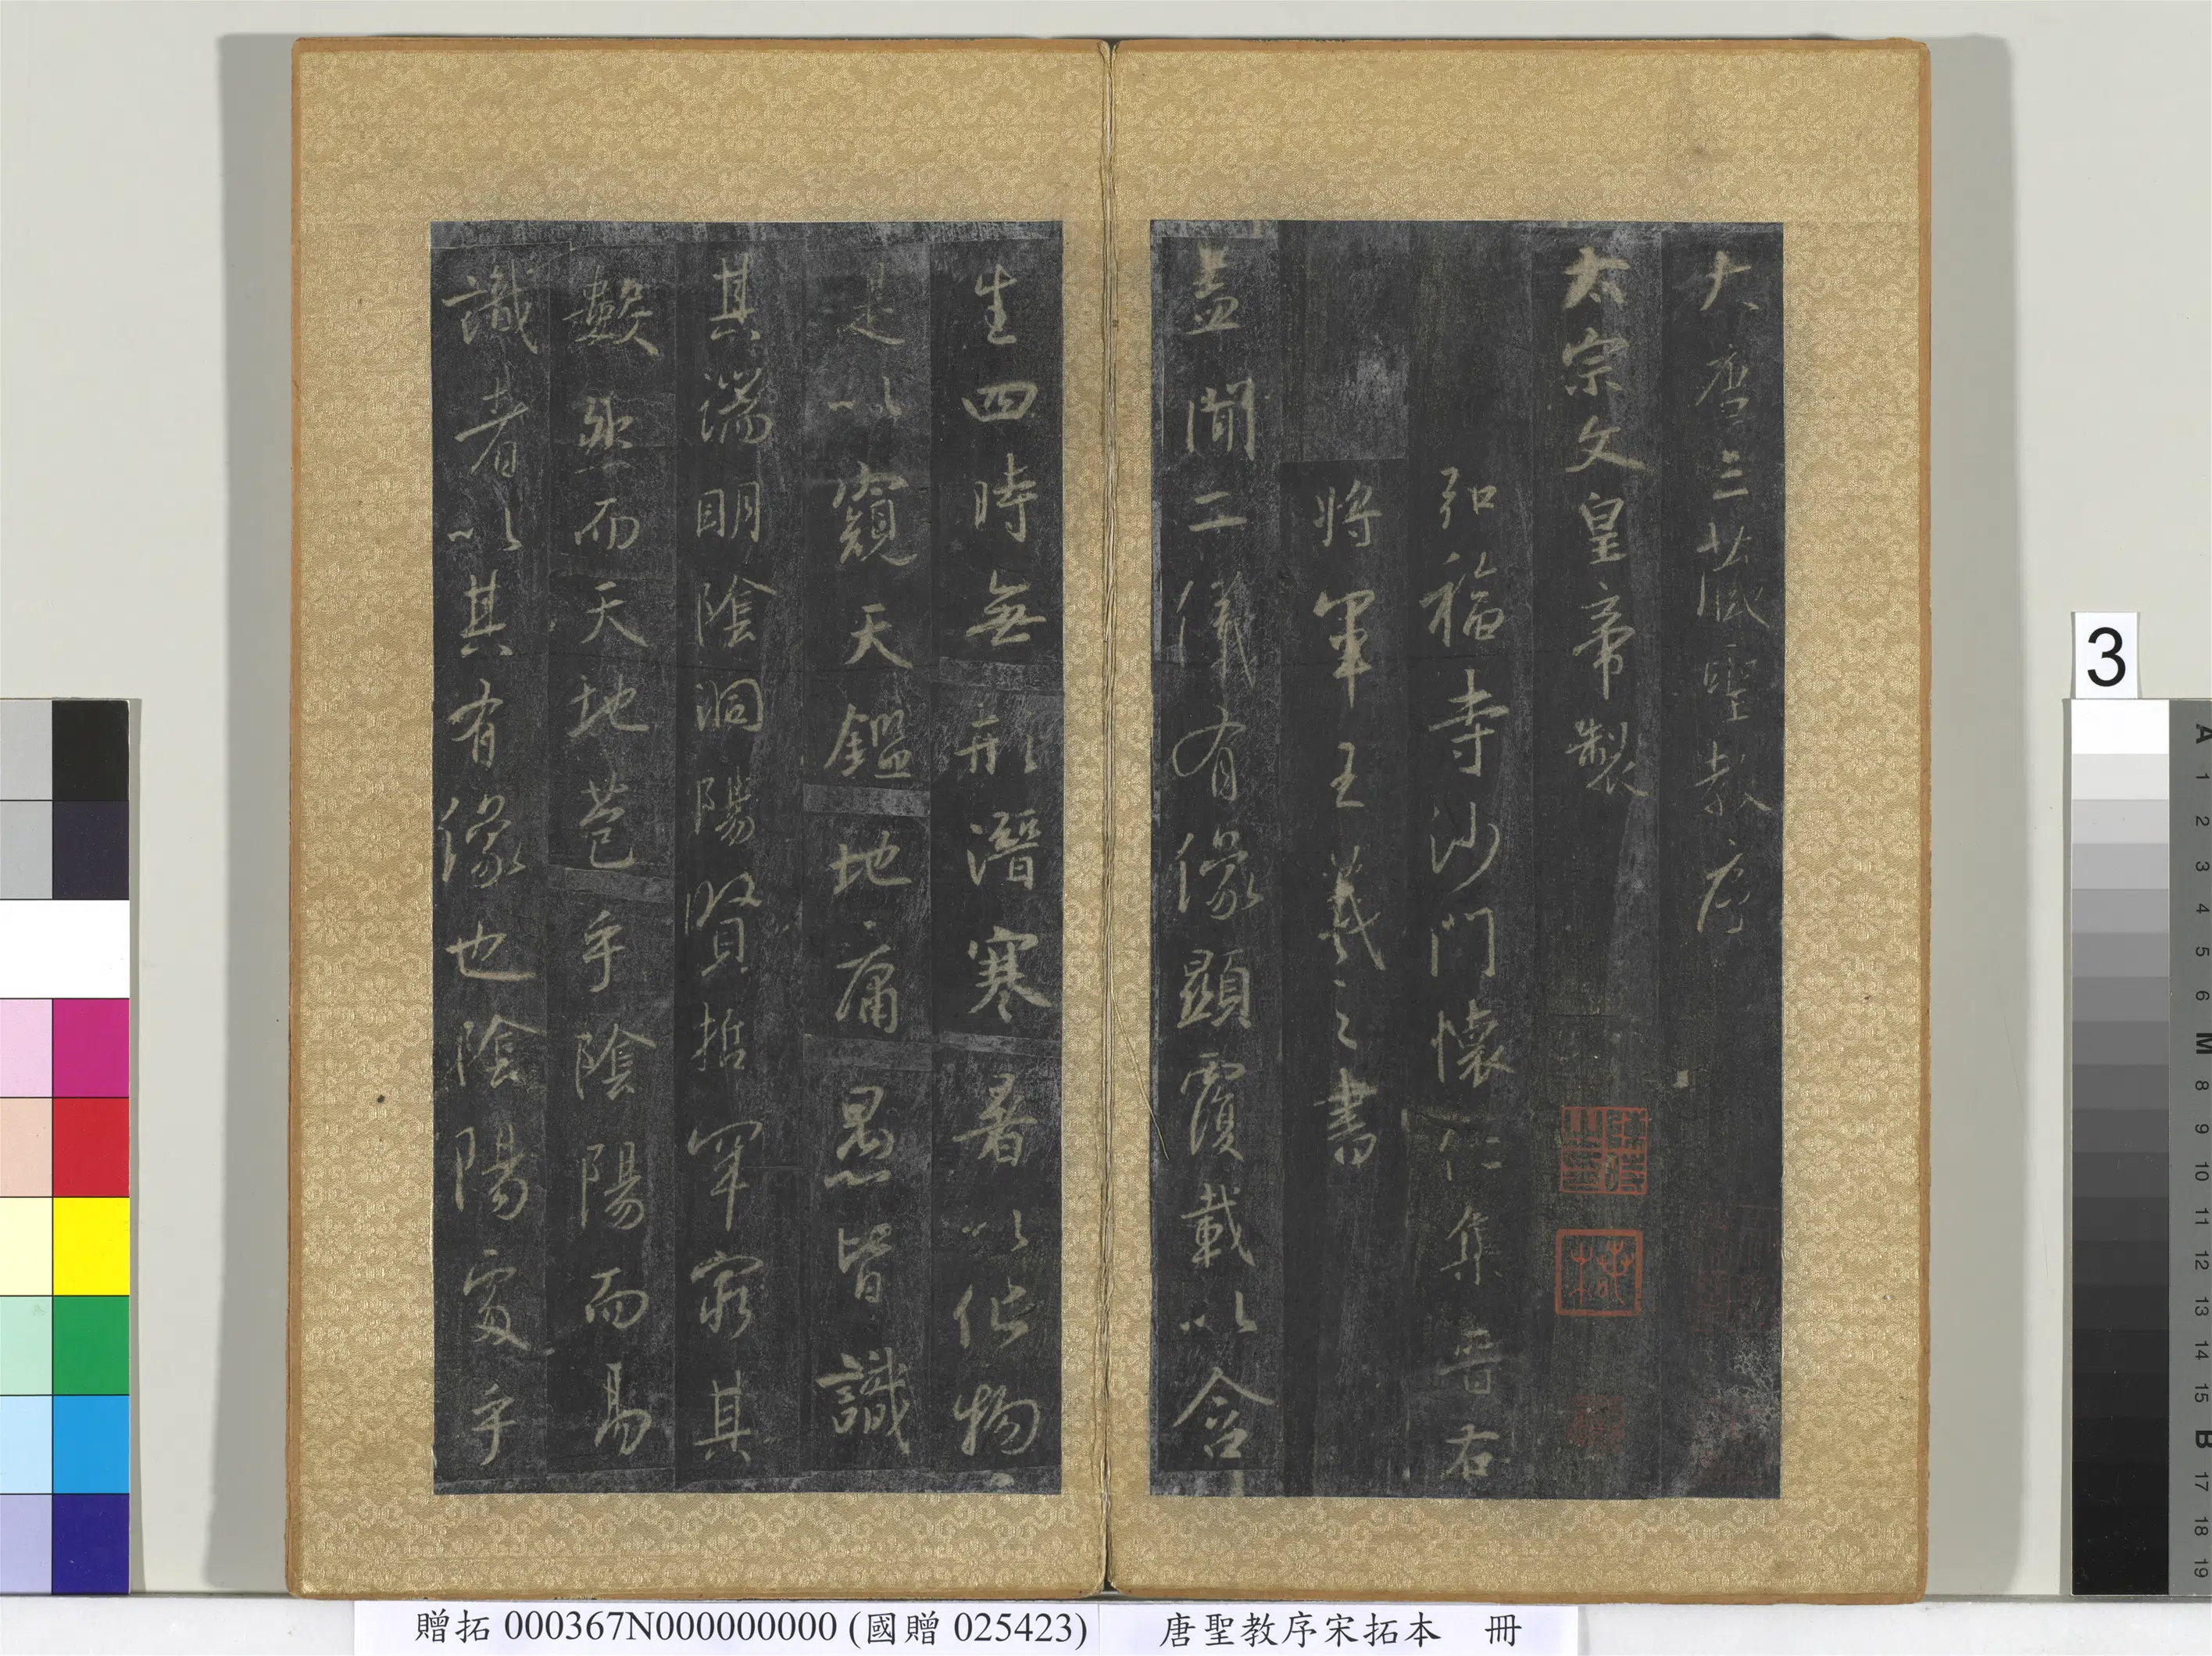 大唐三藏聖教序
太宗文皇帝製
弘福寺沙門懷仁集晉右
將軍王羲之書
盖聞二儀有像顯覆載以含
生四時無形潛寒暑以化物
是以窺天鑑地庸愚皆識
其端明陰洞陽賢哲罕窮其
數然而天地苞乎陰陽而易
識者以其有像也陰陽處乎
3
A 1 2 3 4 5 6 M 8 9 10 11 12 13 14 15 B 17 18 19
贈拓 000367N000000000 (國贈 025423)
唐聖教序宋拓本 冊